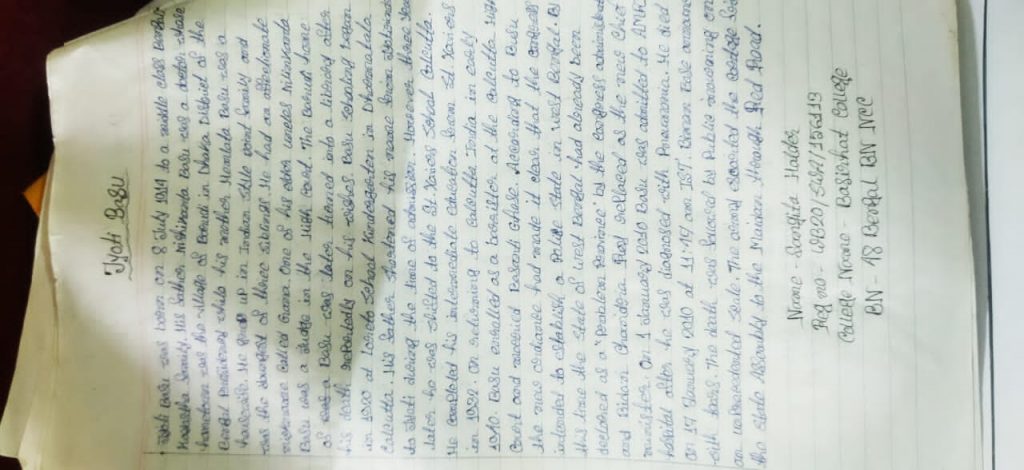 Jyoti Basu
Jyoti Basu was born on 8 July 1914 to a middle class Bengali
Kayastha family. His father, Nishikanta Basu was a doctor whose
hometown was the village of Barudi in Dhaka District of the
Bengal Presidency while his mother Hemlata Basu was a
housewife. He grew up in Indian style joint family and
was the youngest of three siblings. He had an affectionate
nickname called Gana. One of his elder uncles Nilinikanta
Basu was a Judge in the High Court. The Barudi home
of Basu was later turned into a library after
his death reportedly on his wishes. Basu schooling began
in 1920 at Loreto School Kindergarten in Dharmatala
Calcutta. His father shortened his name from Jyotirindra
to Jyoti during the time of admission. However three years
later he was shifted to the St. Xavier's School Calcutta.
He completed his intermediate education from St. Xavier's
in 1932. On returning to Calcutta India in early
1940. Basu enrolled as a barrister at the Calcutta High
Court and married Basanti Ghose. According to Basu
the new ordinance had made it clear that the congress
intended to establish a Police State in West Bengal. By
this time the state of West Bengal had already been
declared as a "Problem Province" by the congress
and Bidhan Chandra Roy replaced as the new Chief
minister. On 1 January 2010 Basu was admitted to AMRI
hospital after he was diagnosed with Pneumonia. He died
on 17 January 2010 at 11:47 am IST. Biman Base announced
with base. The death was by Public mourning on
an unprecedented scale. The army escorted the cortege from
the state Assembly to the Maidan through Red Road.
Name - Sangita Halder
Reg no -
College Name - Basirhat College
BN - 18 Bengal BN NCC